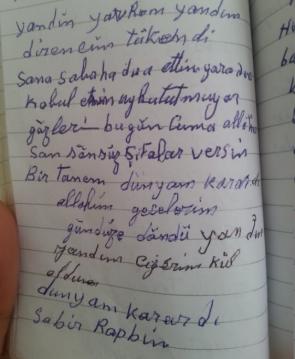 yandım yavrhom yandım
direncim tükendi
Sana sabaha dua ettim yaradana
Kabul etsin uyku tutmuyor
gözlerim bugün Cuma allahım
San sansüz Şifalar versin
Bir Tanem dünyam karardı
allahım gecelerim
gündüze döndü yandım
yandım Ciğerim kül
oldu
dunyam karardı
Sabir Rapbim